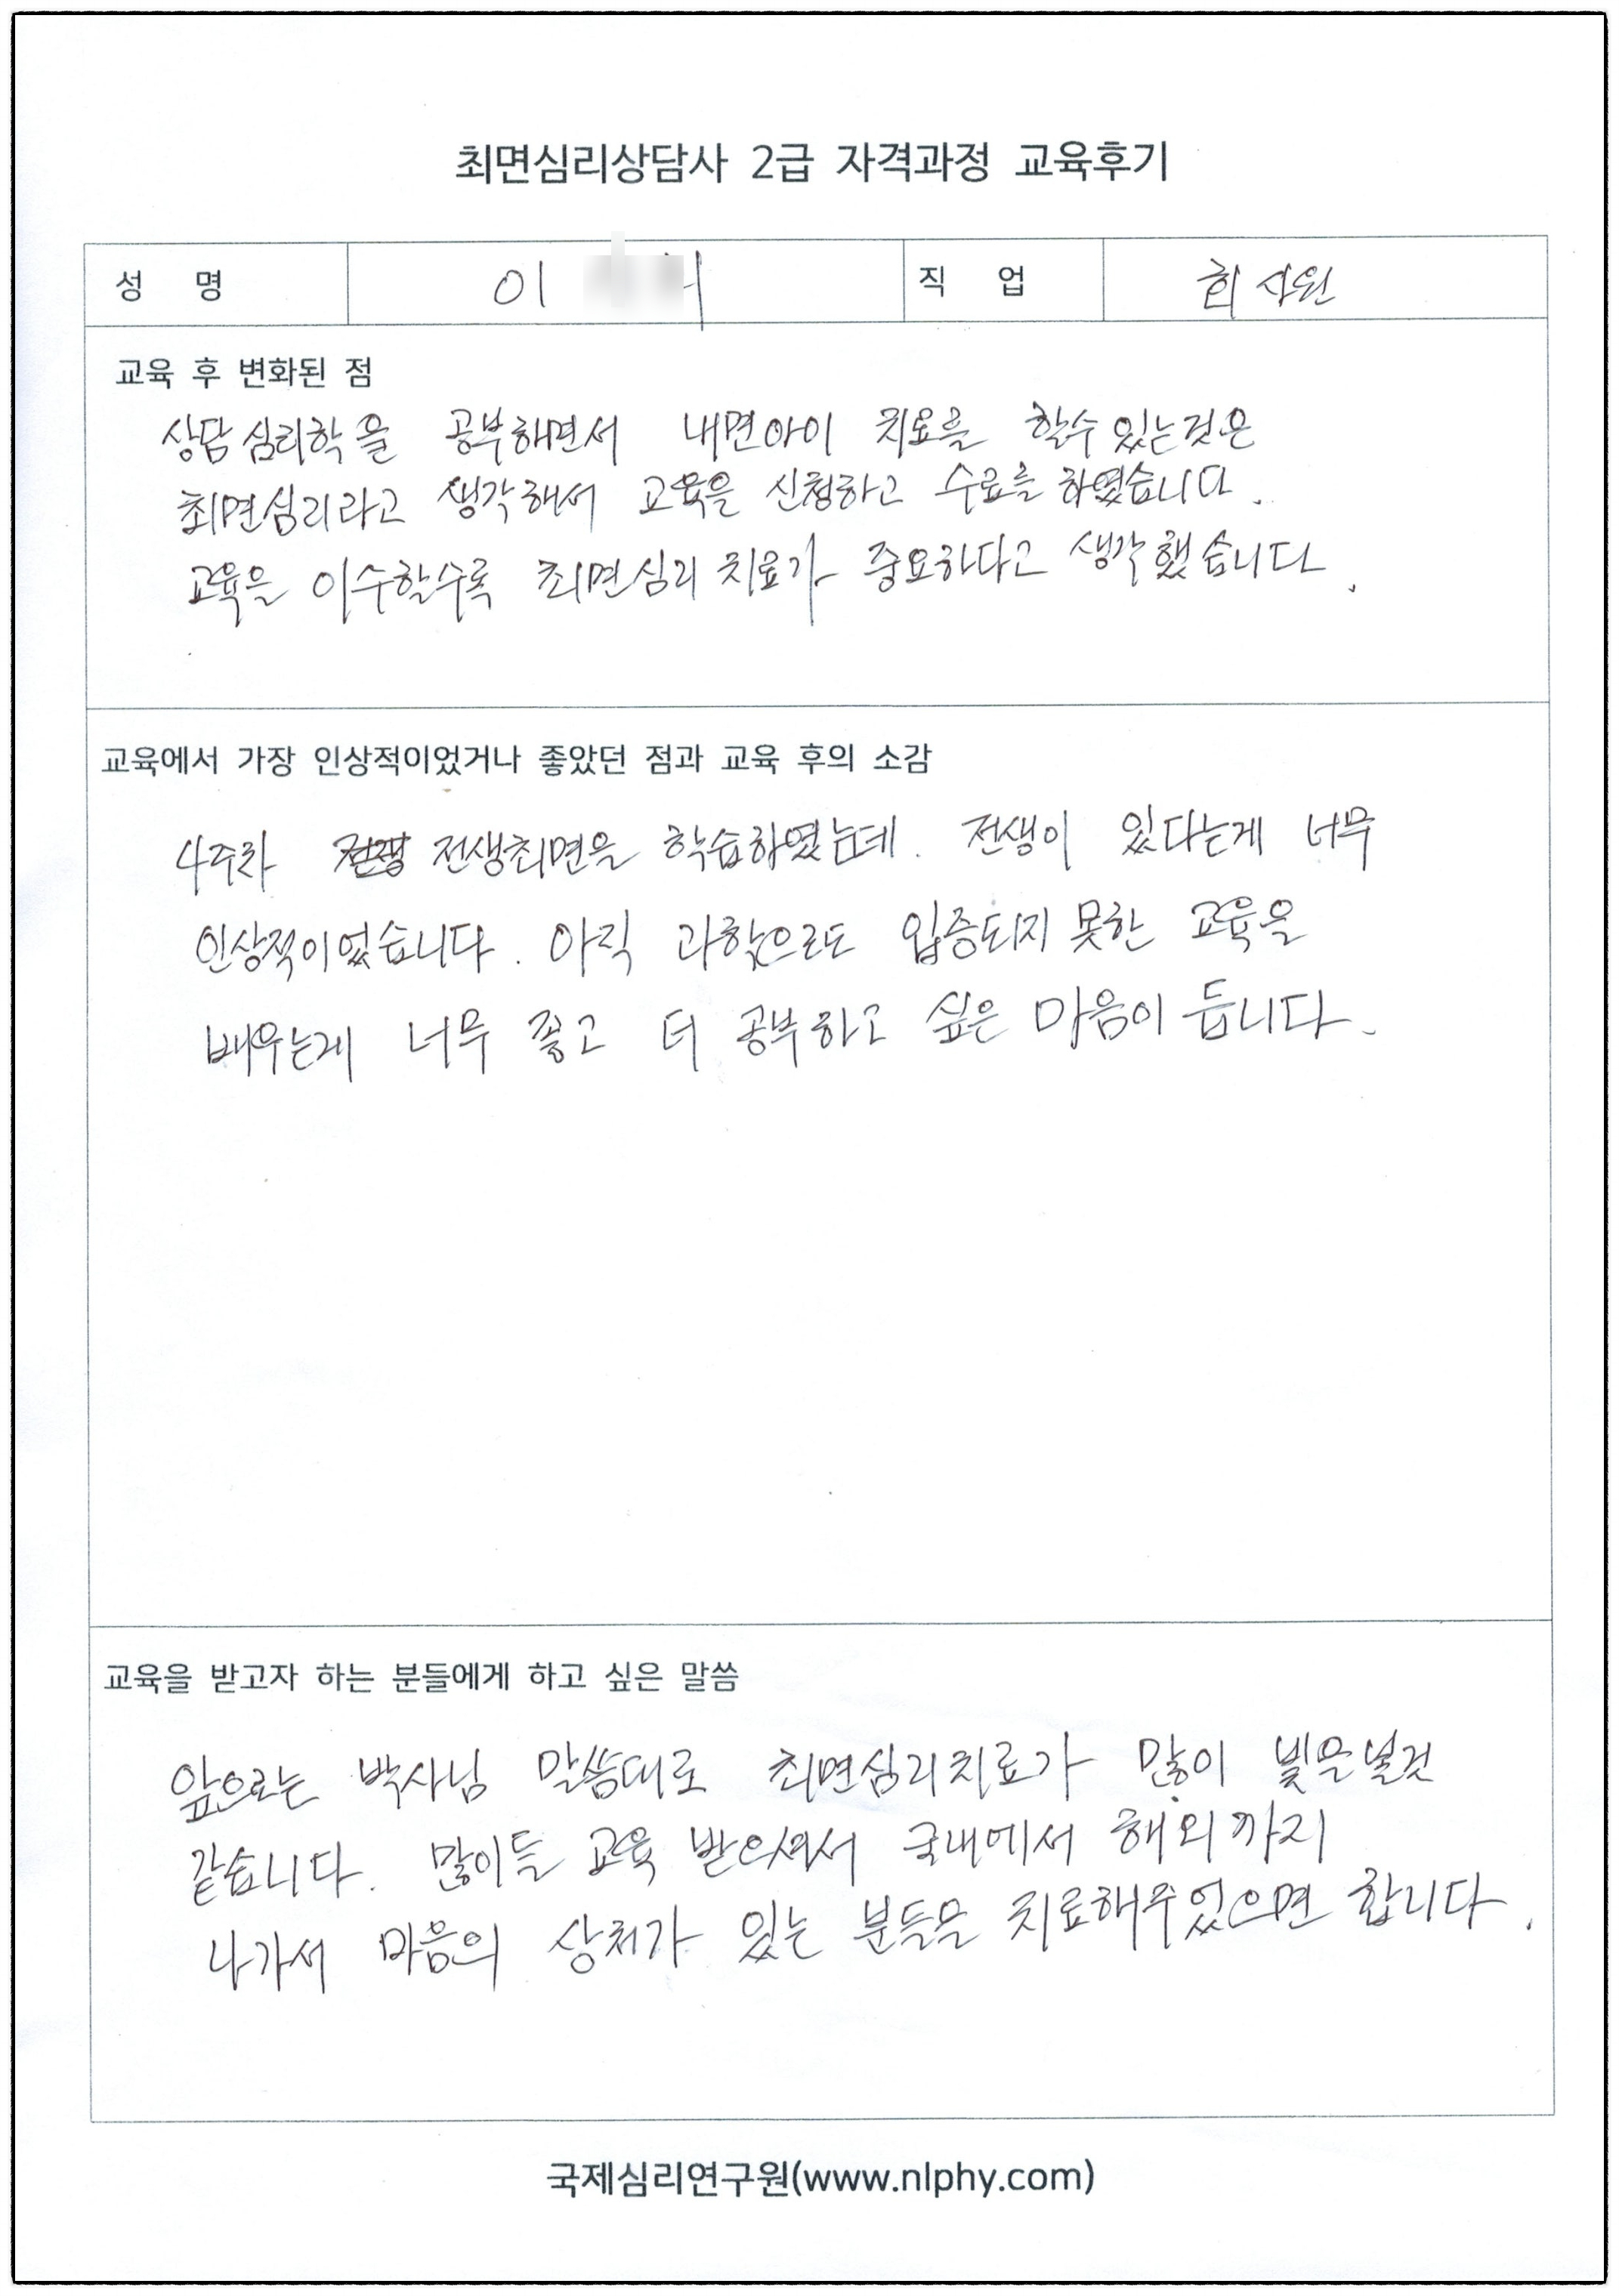 최면심리상담사 2급 자격과정 교육후기
성 명 이 직 업 회사원
교육 후 변화된 점
상담심리학을 공부하면서 내면아이 치료를 할수있는것은
최면심리라고 생각해서 교육을 신청하고 수료를 하였습니다.
교육을 이수할수록 최면심리 치료가 중요하다고 생각했습니다.
교육에서 가장 인상적이었거나 좋았던 점과 교육 후의 소감
4주차 전생최면을 학습하였는데. 전생이 있다는게 너무
인상적이었습니다. 아직 과학으로도 입증되지 못한 교육을
배우는게 너무 좋고 더 공부하고 싶은 마음이 듭니다.
교육을 받고자 하는 분들에게 하고 싶은 말씀
앞으로는 박사님 말씀대로 최면심리치료가 많이 빛을벌것
같습니다. 많이들 교육 받으셔서 국내에서 해외까지
나가서 마음의 상처가 있는 분들을 치료해주었으면 합니다.
국제심리연구원(www.nlphy.com)